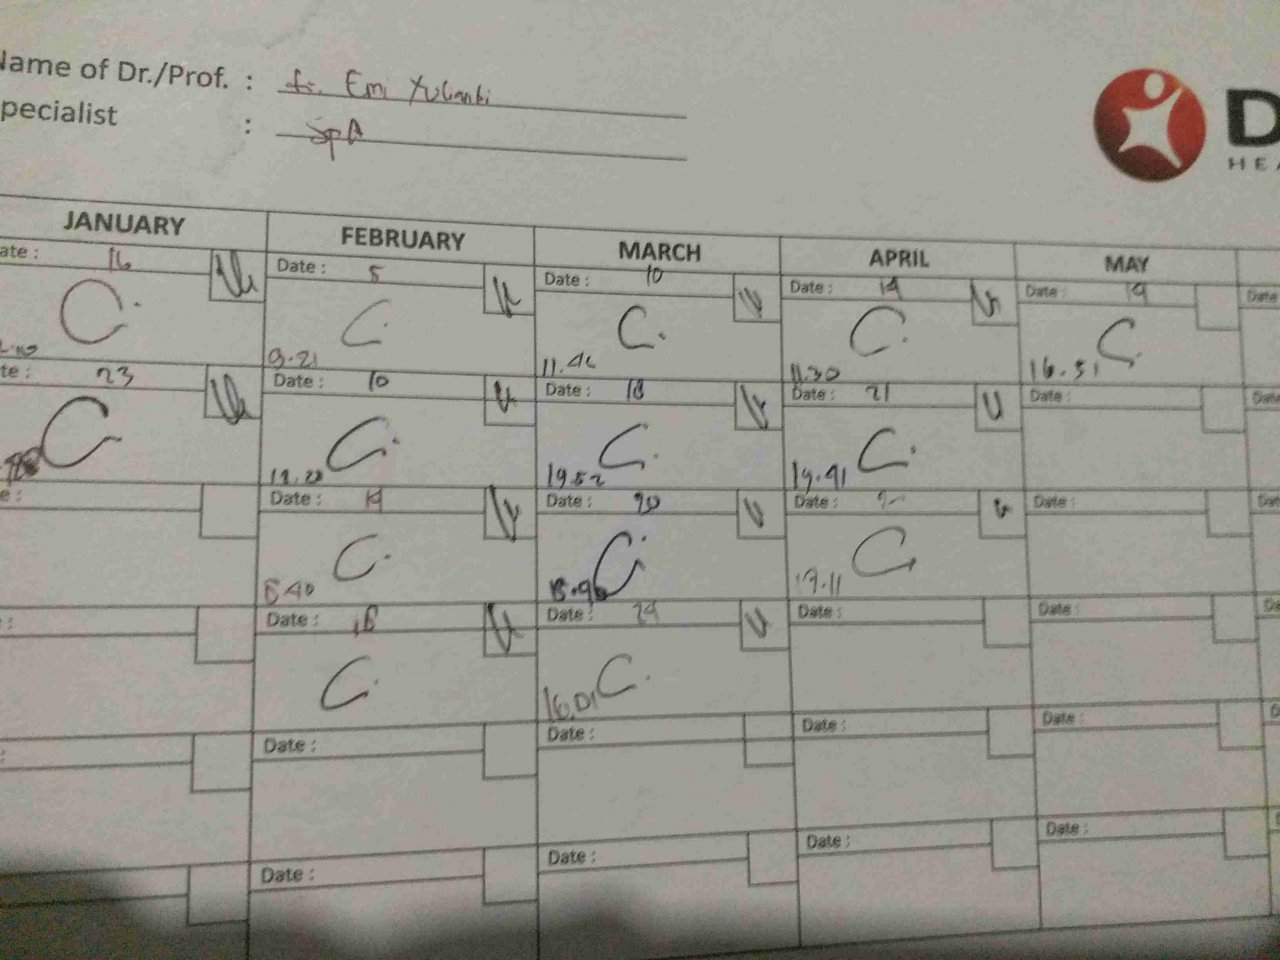 Name of Dr./Prof. : dr. Emi Yulianti
Specialist : SpA
D
HEA
JANUARY FEBRUARY MARCH APRIL MAY
Date : 16 Date : 5 Date : 10 Date : 14 Date : 19 Date
C. C. C. C. C.
9.21 11.46 11.30 16.51
Date : 23 Date : 10 Date : 18 Date : 21 Date : Date
C C. C. C.
19.52 19.41
Date : Date : 14 Date : 20 Date : Date : Date
C. C C
8.40 17.11
Date : 18 Date : 24 Date : Date : Da
C. C.
16.01
Date : Date : Date : Date : D
Date : Date : Date : Date : D